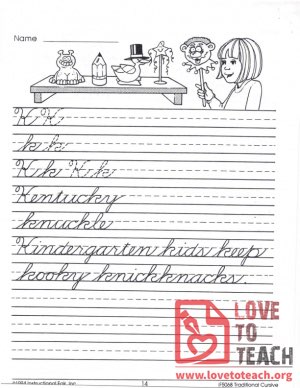 Name
K K
k k
K k K k
Kentucky
knuckle
Kindergarten kids keep
kooky knickknacks.
LOVE
TO
TEACH
www.lovetoteach.org
©1994 Instructional Fair, Inc.
14
#5068 Traditional Cursive